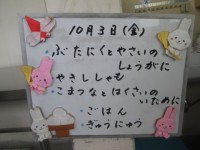 10月3日(金)
・ぶたにくとやさいの
しょうがに
・やきししゃも
・こまつなとはくさいの
いために
・ごはん
・ぎゅうにゅう